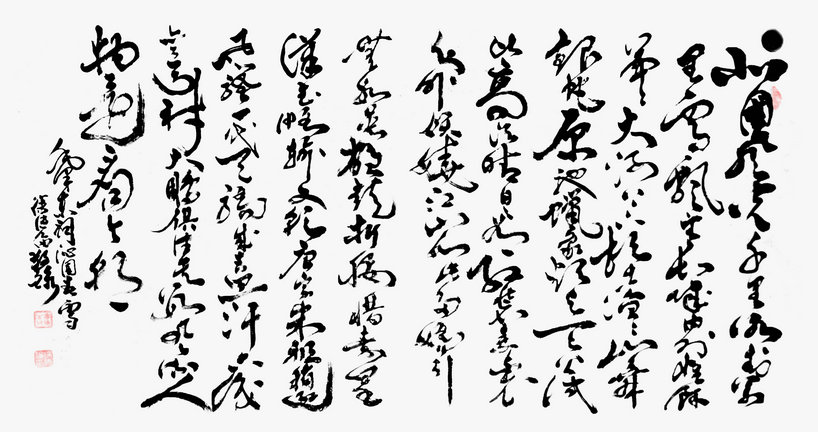 北国风光千里冰封万
里雪飘望长城内外惟余
莽莽大河上下顿失滔滔山舞
银蛇原驰蜡象欲与天公试
比高须晴日看红装素裹
分外妖娆江山如此多娇引
无数英雄竞折腰惜秦皇
汉武略输文采唐宗宋祖稍逊
风骚一代天骄成吉思汗只识
弯弓射大雕俱往矣数风流人
物还看今朝
毛泽东词沁园春雪